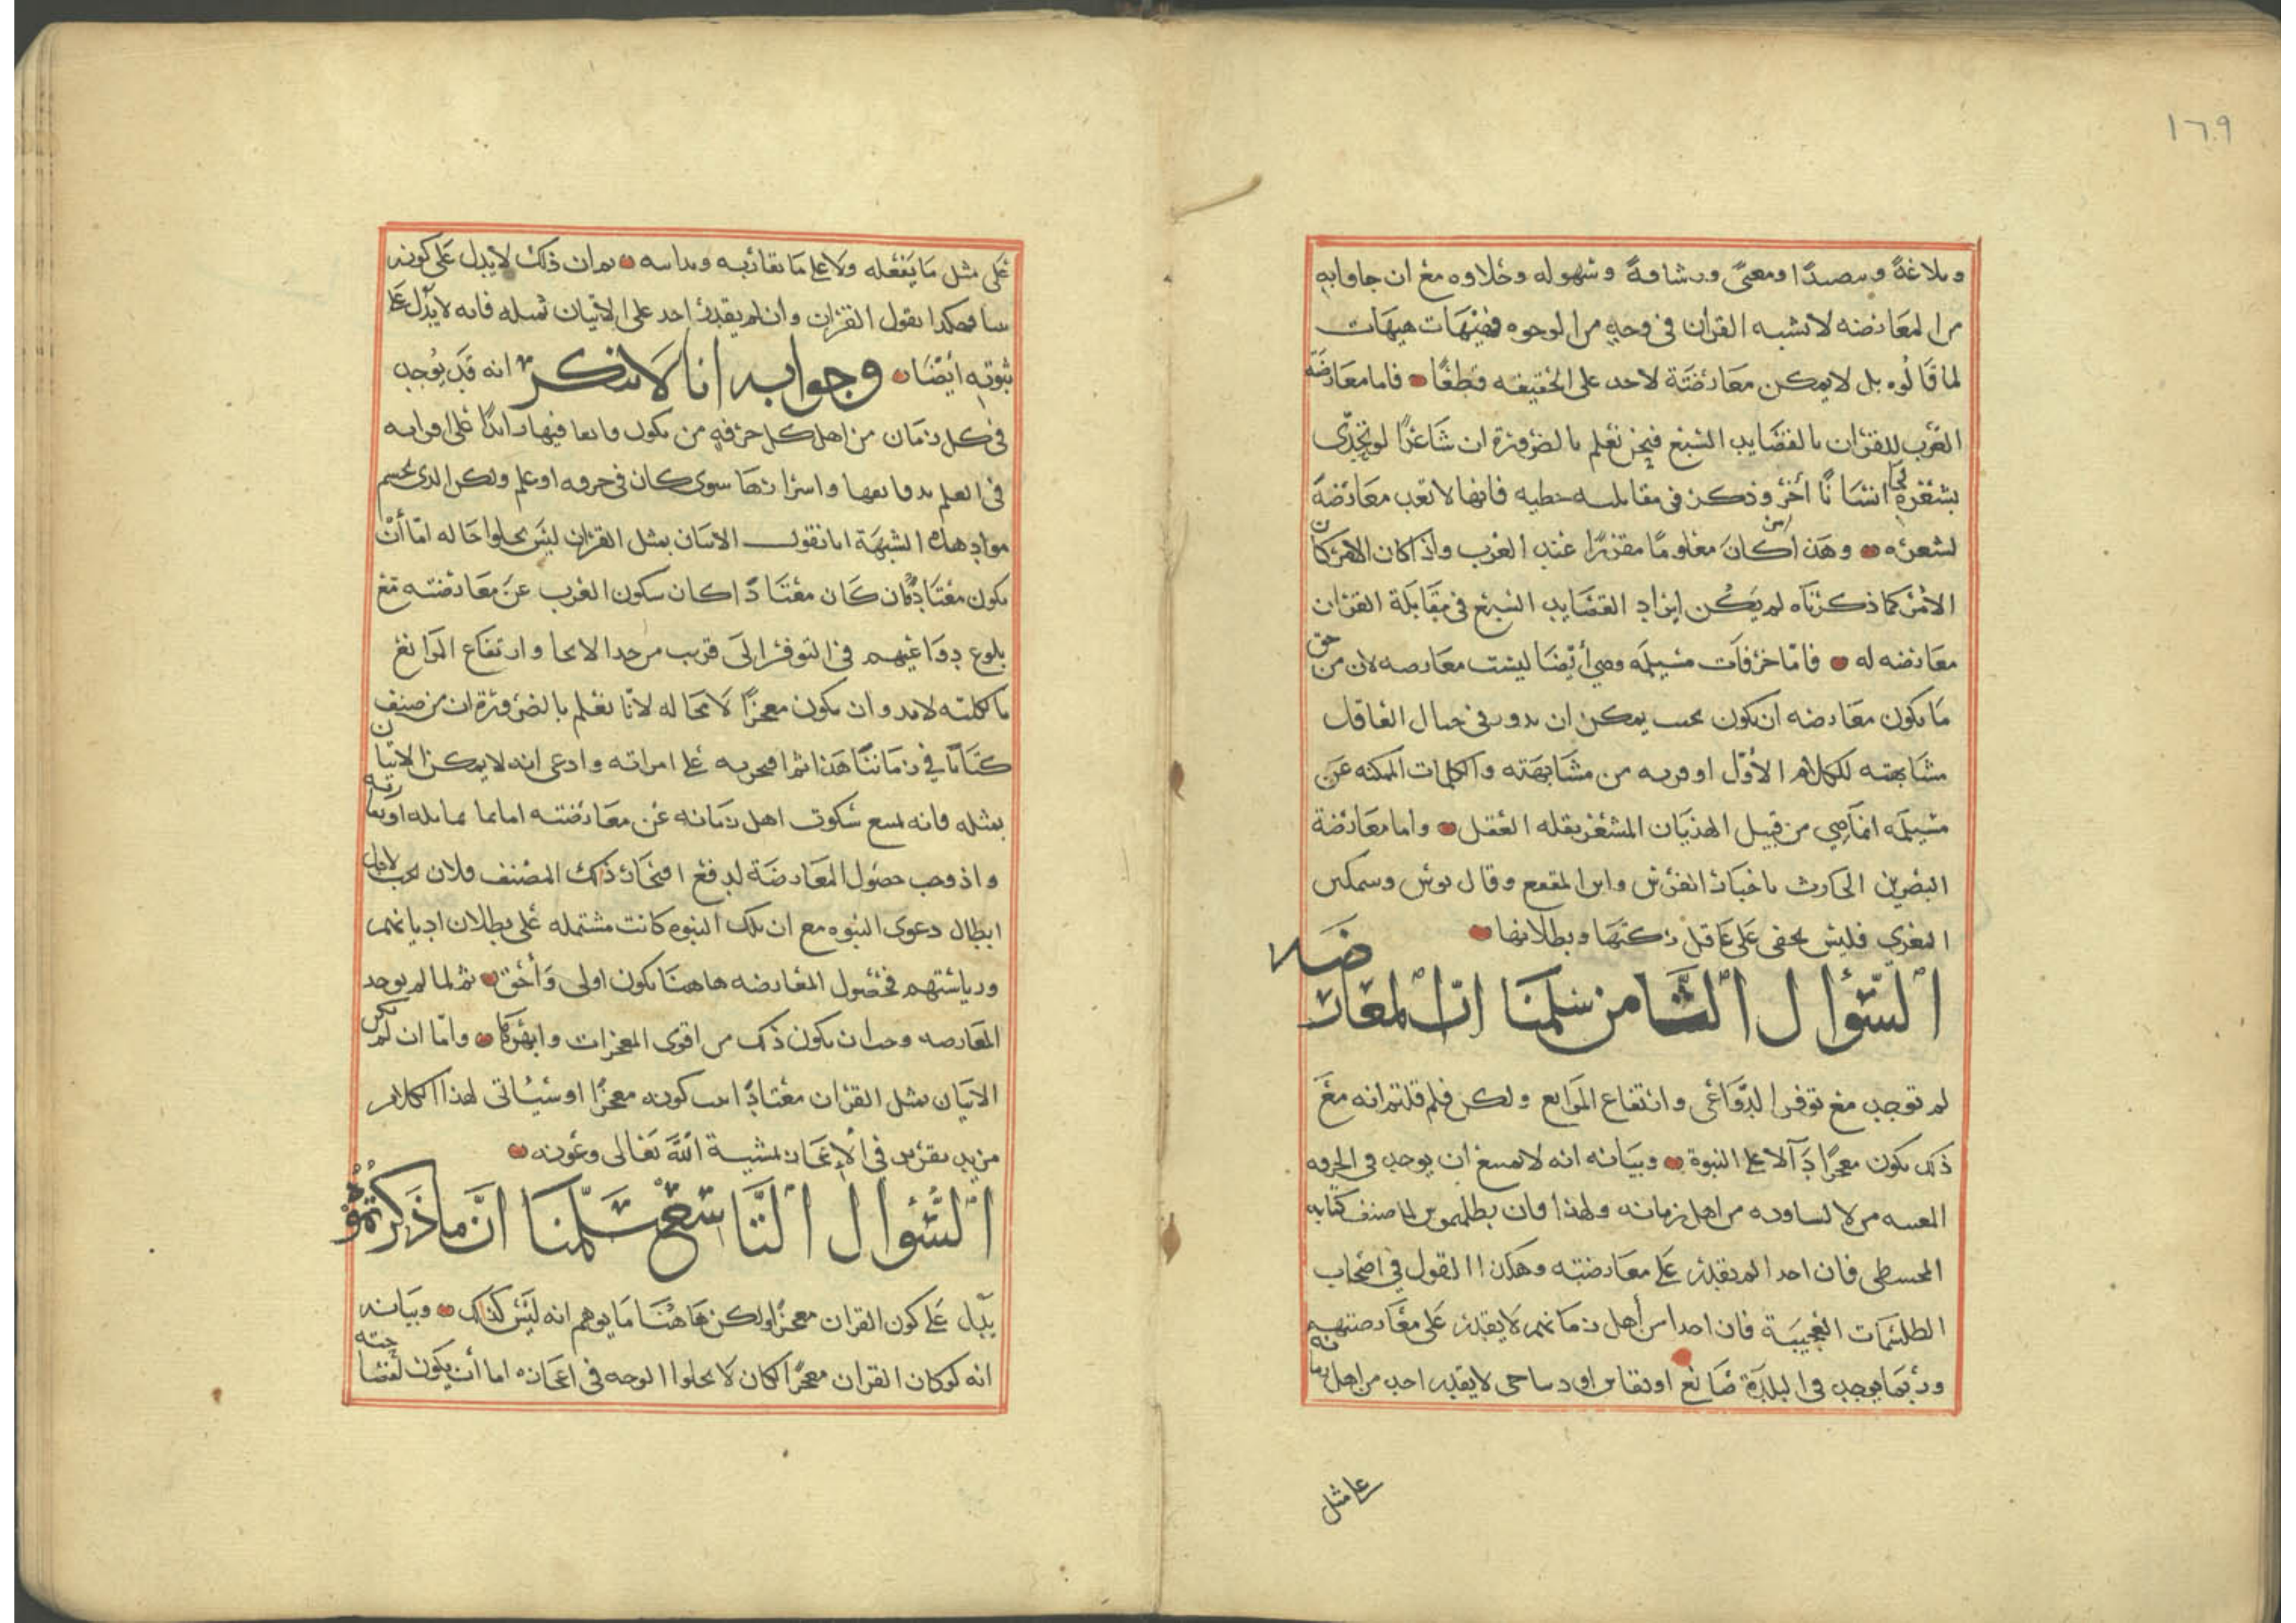 ١٦٩
وبلاغةً و ومعنىً ورشاقةً وسهوله وحلاوه مع ان جاوا به
من المعارضه لا تشبه القرآن في وجهٍ من الوجوه فهيهات هيهات
لما قالوه بل لا يمكن معارضَتة لاحد على الحقيقه قطعًا فاما معارضَة
العرب للقرآن بالقصايد السبع فنحن نعلم بالضرورة ان شاعرًا لو تحدّى
بشعره انسانًا أخر وذكر في مقابلته خطبه فانها لا تعد معارضة
لشعره وهذا كانَ معلومًا مقررًا عند العرب واذا كان الامر كان
الأمر كما ذكرناه لم يَكُن ايراد القصَايد السبع في مقابلة القرآن
معارضه له فامّا خرافات مسيلمَه وهي أيضًا ليست معارضه لان من حق
مَا يكون معَارضه ان يكون بحيث يمكن ان يدور في خيال العاقل
مشابهته لكلام الأوّل او قربه من مشابهَته والكلمات المحكيه عَن
مسيلمَه انما هي من قبيل الهذيَان المشعر بقله العقل واما معارضة
النضر بن الحارث باخبار الفرس وابن المقفع وقال بوس وسمكين
المعري فليس يخفى على عَاقل ركتهَا وبطلانها
السّؤال الثَّامن سلمنا ان المعارضه
لم توجد مع توفر الدَّوَاعي وارتفاع الموانع ولكن فلم قلتم انه معَ
ذلك يكون معجزًا دَآلا على النبوة وبيانه انه لا يمتنع ان يوجد في الحرفه
المعينه من لا يساويه من اهل زمانه ولهذا فان بطلميوس لما صنف كتابه
المجسطي فان احدا لم يقدر على معارضته وهكذا القول في اصحاب
الطلسمَات العجيبَة فان احدا من أهل زمانهم لا يقدر عَلى معَارضتهم
وربّما يوجد في البلدة صَانع او نقاش او لا يقدر احد من اهل زمانه
على مثل
عَلى مثل مَا يفعله ولا على مَا يقاربه ويدانيه ثم ان ذلك لا يدل عَلى كونه
نبيا فهكذا نقول القرآن وان لم يقدر احد على الاتيان بمثله فانه لا يدل على
ثبوته أيضَا وجوابه انا لا ننكر انه قد يوجد
في كل زمَان من اهل كل حرفةٍ من يكون فايقا فيها زايدًا على اقرانه
في العلم بدقايقها واسرارهَا سوى كان في حرفه او علم ولكن الذي يحسم
مواد هذه الشبهَة انا نقول الاتيان بمثل القرآن ليسَ يخلوا حَاله امّا أنْ
يكون معتادًا فان كان معتَادًا كان سكون العرب عن معَارضته مَع
بلوغ دوَاعيهم في التوفر الى قريب من حد الالجا وارتفاع الموَانع
بالكليه لا بد وان يكون معجزًا لا محاله لانّا نعلم بالضرورة ان من صنف
كتَابًا في زماننا هَذا ثم افتخر به على اقرانه وادعى انه لا يمكن الاتيان
بمثله فانه يمتنع سكوت اهل زمَانه عن معَارضته اما بما يماثله او يقاربه
واذ وجب حصُول المعَارضَة لدفع افتخار ذلك المصنف فلان يجب لاجل
ابطال دعوى النبوه مع ان تلك النبوه كانت مشتمله على بطلان اديانهم
ورياستهم فحصُول المعَارضه هاهنا يكون اولى وَأحق ثم لما لم يوجد
المعَارضه وجب ان يكون ذلك من اقوى المعجزات وابهرهَا وامّا ان لم يكن
الاتيان بمثل القرآن معتادًا ثبت كونه معجزًا وسيأتى لهذا الكلام
مزيد تقرير في الإعجاز بمشيئة الله تعَالى وعَونه
السُّؤال التَّاسع سلّمنا انَّ ما ذكرتموه
يدل عَلى كون القرآن معجزًا ولكن هَاهُنَا مَا يوهم انه ليس كذلك وبيَانه
انه لو كان القرآن معجزًا لكان لا يخلوا الوجه في اعجازه اما أن يكون لفصاحته